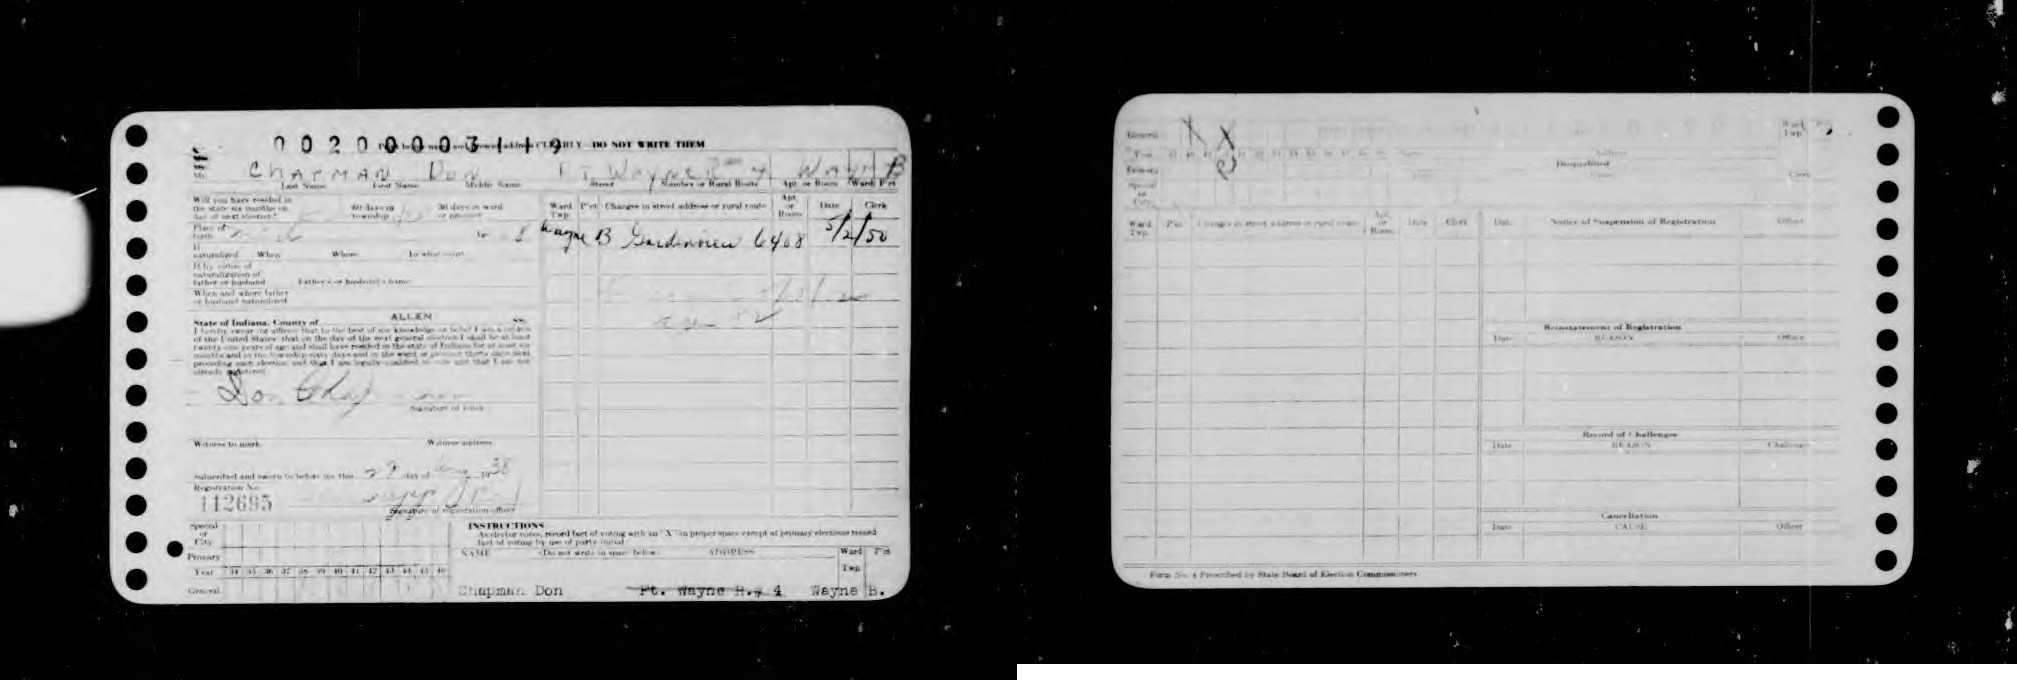 00200003119
CLEARLY—DO NOT WRITE THEM
Mr. Chapman Don Ft. Wayne R 4 Wayne B
Last Name First Name Middle Name Street Number or Rural Route Apt. or Room Ward P'ct
Will you have resided in
the state six months on 60 days in 30 days in ward
day of next election? township or precinct
Ward Twp. P'ct Changes in street address or rural route Apt. or Room Date Clerk
Place of birth
Wayne B Gardenview 6408 5/2/50
If naturalized When Where In what court
If by virtue of
naturalization of
father or husband Father's or husband's name
When and where father
or husband naturalized
State of Indiana, County of ALLEN ss.
I hereby swear (or affirm) that to the best of my knowledge or belief I am a citizen
of the United States; that on the day of the next general election I shall be at least
twenty-one years of age and shall have resided in the state of Indiana for at least six
months and in the township sixty days and in the ward or precinct thirty days next
preceding such election, and that I am legally qualified to vote and that I am not
already registered.
Don Chap
Signature of voter
Witness to mark Witness address
Subscribed and sworn to before me this 27 day of Aug 1938
Registration No.
112695
Signature of registration officer
Special or City
Primary
Year 34 35 36 37 38 39 40 41 42 43 44 45 46
General
INSTRUCTIONS
As elector votes, record fact of voting with an "X" in proper space except at primary elections record
fact of voting by use of party initial
NAME (Do not write in space below) ADDRESS Ward Twp. P'ct
Chapman Don Ft. Wayne R. 4 Wayne B.
General X X Ward Twp.
Year Name Address
Primary R Disqualified
Special or City Date Cause Clerk
Ward Twp. P'ct Changes in street address or rural route Apt. or Room Date Clerk Date Notice of Suspension of Registration Officer
Reinstatement of Registration
Date REASON Officer
Record of Challenges
Date REASON Challenger
Cancellation
Date CAUSE Officer
Form No. 4 Prescribed by State Board of Election Commissioners